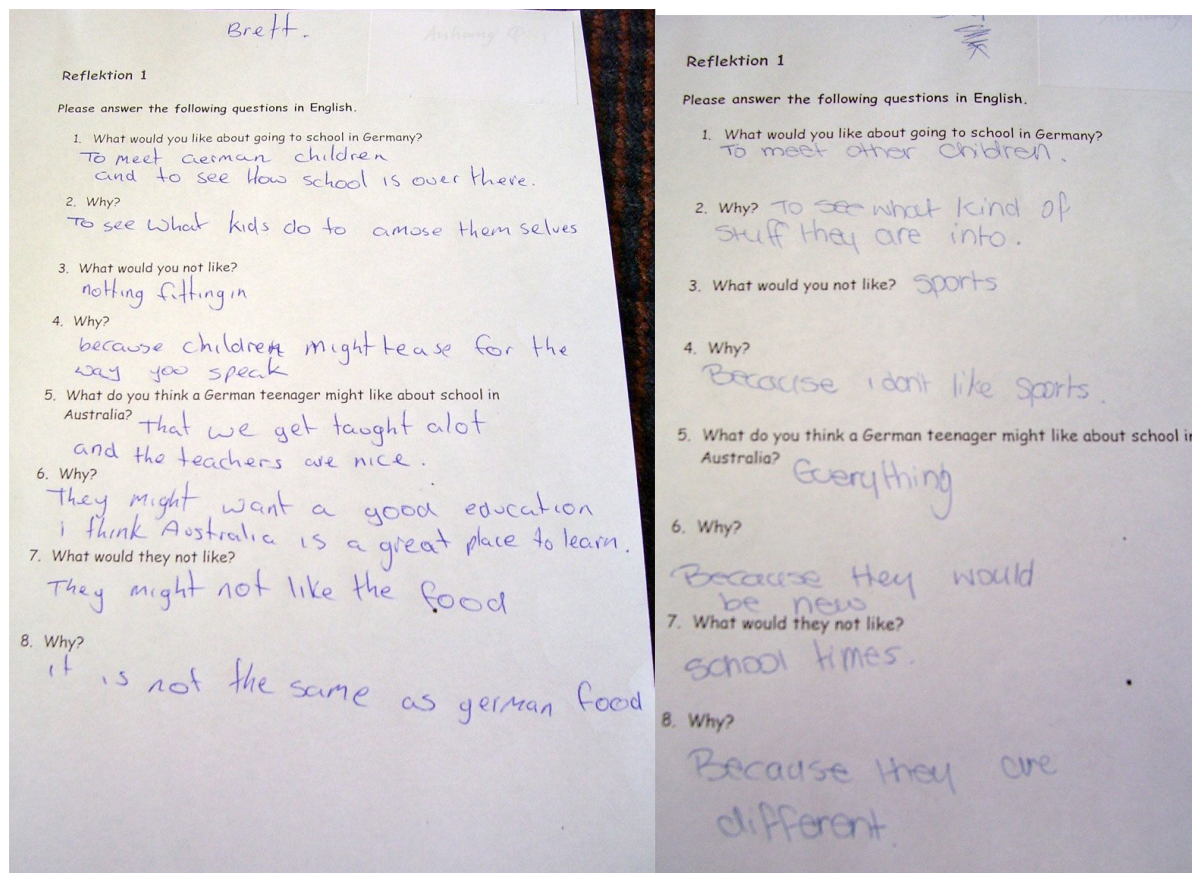 Brett.
Reflektion 1
Please answer the following questions in English.
1. What would you like about going to school in Germany?
To meet German children
and to see How school is over there.
2. Why?
To see what kids do to amose them selves
3. What would you not like?
notting fitting in
4. Why?
because children might tease for the
way you speak
5. What do you think a German teenager might like about school in
Australia? That we get taught alot
and the teachers are nice.
6. Why?
They might want a good education
i think Australia is a great place to learn.
7. What would they not like?
They might not like the food
8. Why?
it is not the same as german food
Reflektion 1
Please answer the following questions in English.
1. What would you like about going to school in Germany?
To meet other children.
2. Why? To see what kind of
stuff they are into.
3. What would you not like? Sports
4. Why?
Because i don't like sports.
5. What do you think a German teenager might like about school in
Australia? Everything
6. Why?
Because they would
be new
7. What would they not like?
school times.
8. Why?
Because they are
different.